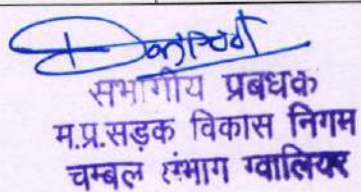 सभागीय प्रबधक
म.प्र.सड़क विकास निगम
चम्बल संभाग ग्वालियर